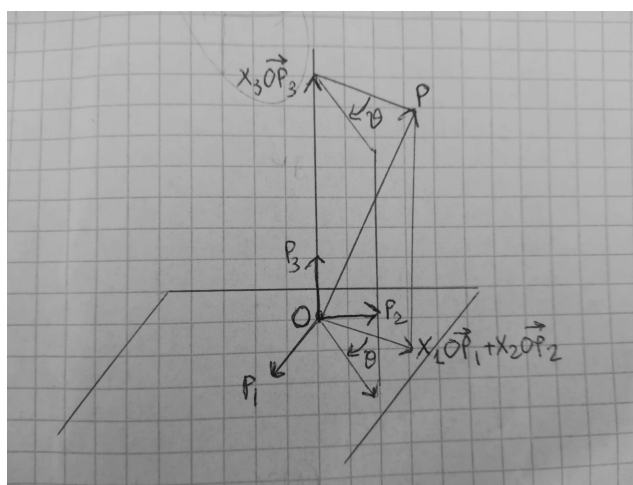 X₃O⃗P⃗₃
P
θ
P₃
O
P₂
X₁O⃗P⃗₁+X₂O⃗P⃗₂
θ
P₁